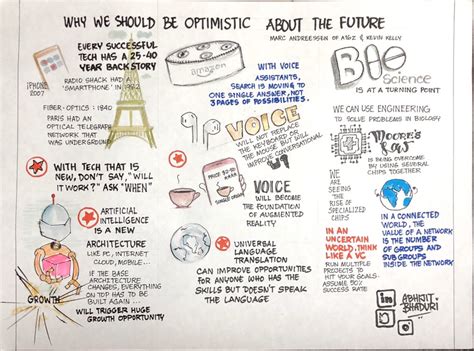 WHY WE SHOULD BE OPTIMISTIC ABOUT THE FUTURE
MARC ANDREESSEN OF A16Z & KEVIN KELLY
EVERY SUCCESSFUL
TECH HAS A 25-40
YEAR BACKSTORY
IPHONE
2007
RADIO SHACK HAD A
'SMARTPHONE' IN
FIBER-OPTICS : 1840
PARIS HAD AN
OPTICAL TELEGRAPH
NETWORK THAT
WAS UNDERGROUND
WITH TECH THAT IS
NEW, DON'T SAY, "WILL
IT WORK?" ASK "WHEN"
ARTIFICIAL
INTELLIGENCE IS
A NEW
ARCHITECTURE
LIKE PC, INTERNET
CLOUD, MOBILE...
IF THE BASE
ARCHITECTURE
CHANGES, EVERYTHING
ON TOP HAS TO BE
BUILT AGAIN...
GROWTH
WILL TRIGGER HUGE
GROWTH OPPORTUNITY
amazon
WITH VOICE
ASSISTANTS,
SEARCH IS MOVING TO
ONE SINGLE ANSWER, NOT
3 PAGES OF POSSIBILITIES.
VOICE
WILL NOT REPLACE
THE KEYBOARD AND
THE MOUSE BUT WILL
IMPROVE CONVERSATIONAL
VOICE
WILL BECOME
THE FOUNDATION
OF AUGMENTED
REALITY
UNIVERSAL
LANGUAGE
TRANSLATION
CAN IMPROVE OPPORTUNITIES
FOR ANYONE WHO HAS THE
SKILLS BUT DOESN'T SPEAK
THE LANGUAGE
BIO
Science
IS AT A TURNING POINT
WE CAN USE ENGINEERING
TO SOLVE PROBLEMS IN BIOLOGY
MOORE'S
LAW
IS BEING OVERCOME
BY USING SEVERAL
CHIPS TOGETHER
WE
ARE
SEEING
THE
RISE OF
SPECIALIZED
CHIPS
IN AN
UNCERTAIN
WORLD, THINK
LIKE A VC
RUN MULTIPLE
PROJECTS TO
HIT YOUR GOALS.
ASSUME 50%
SUCCESS RATE
IN A CONNECTED
WORLD, THE
VALUE OF A NETWORK
IS THE NUMBER
OF GROUPS AND
SUB GROUPS
INSIDE THE NETWORK
in
ABHIJIT
BHADURI